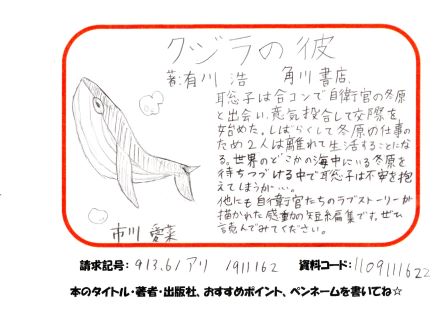 クジラの彼
著:有川 浩　角川書店
聡子は合コンで自衛官の冬原
と出会い、意気投合して交際を
始めた。しばらくして冬原の仕事の
ため2人は離れて生活することにな
る。世界のどこかの海中にいる冬原を
待ちつづける中で聡子は不安を抱
えてしまうが…。
他にも自衛官たちのラブストーリーが
描かれた感動の短編集です。ぜひ
読んでみてください。
市川 愛菜
請求記号: 913.6/アリ /911162 資料コード:1109111622
本のタイトル・著者・出版社、おすすめポイント、ペンネームを書いてね☆